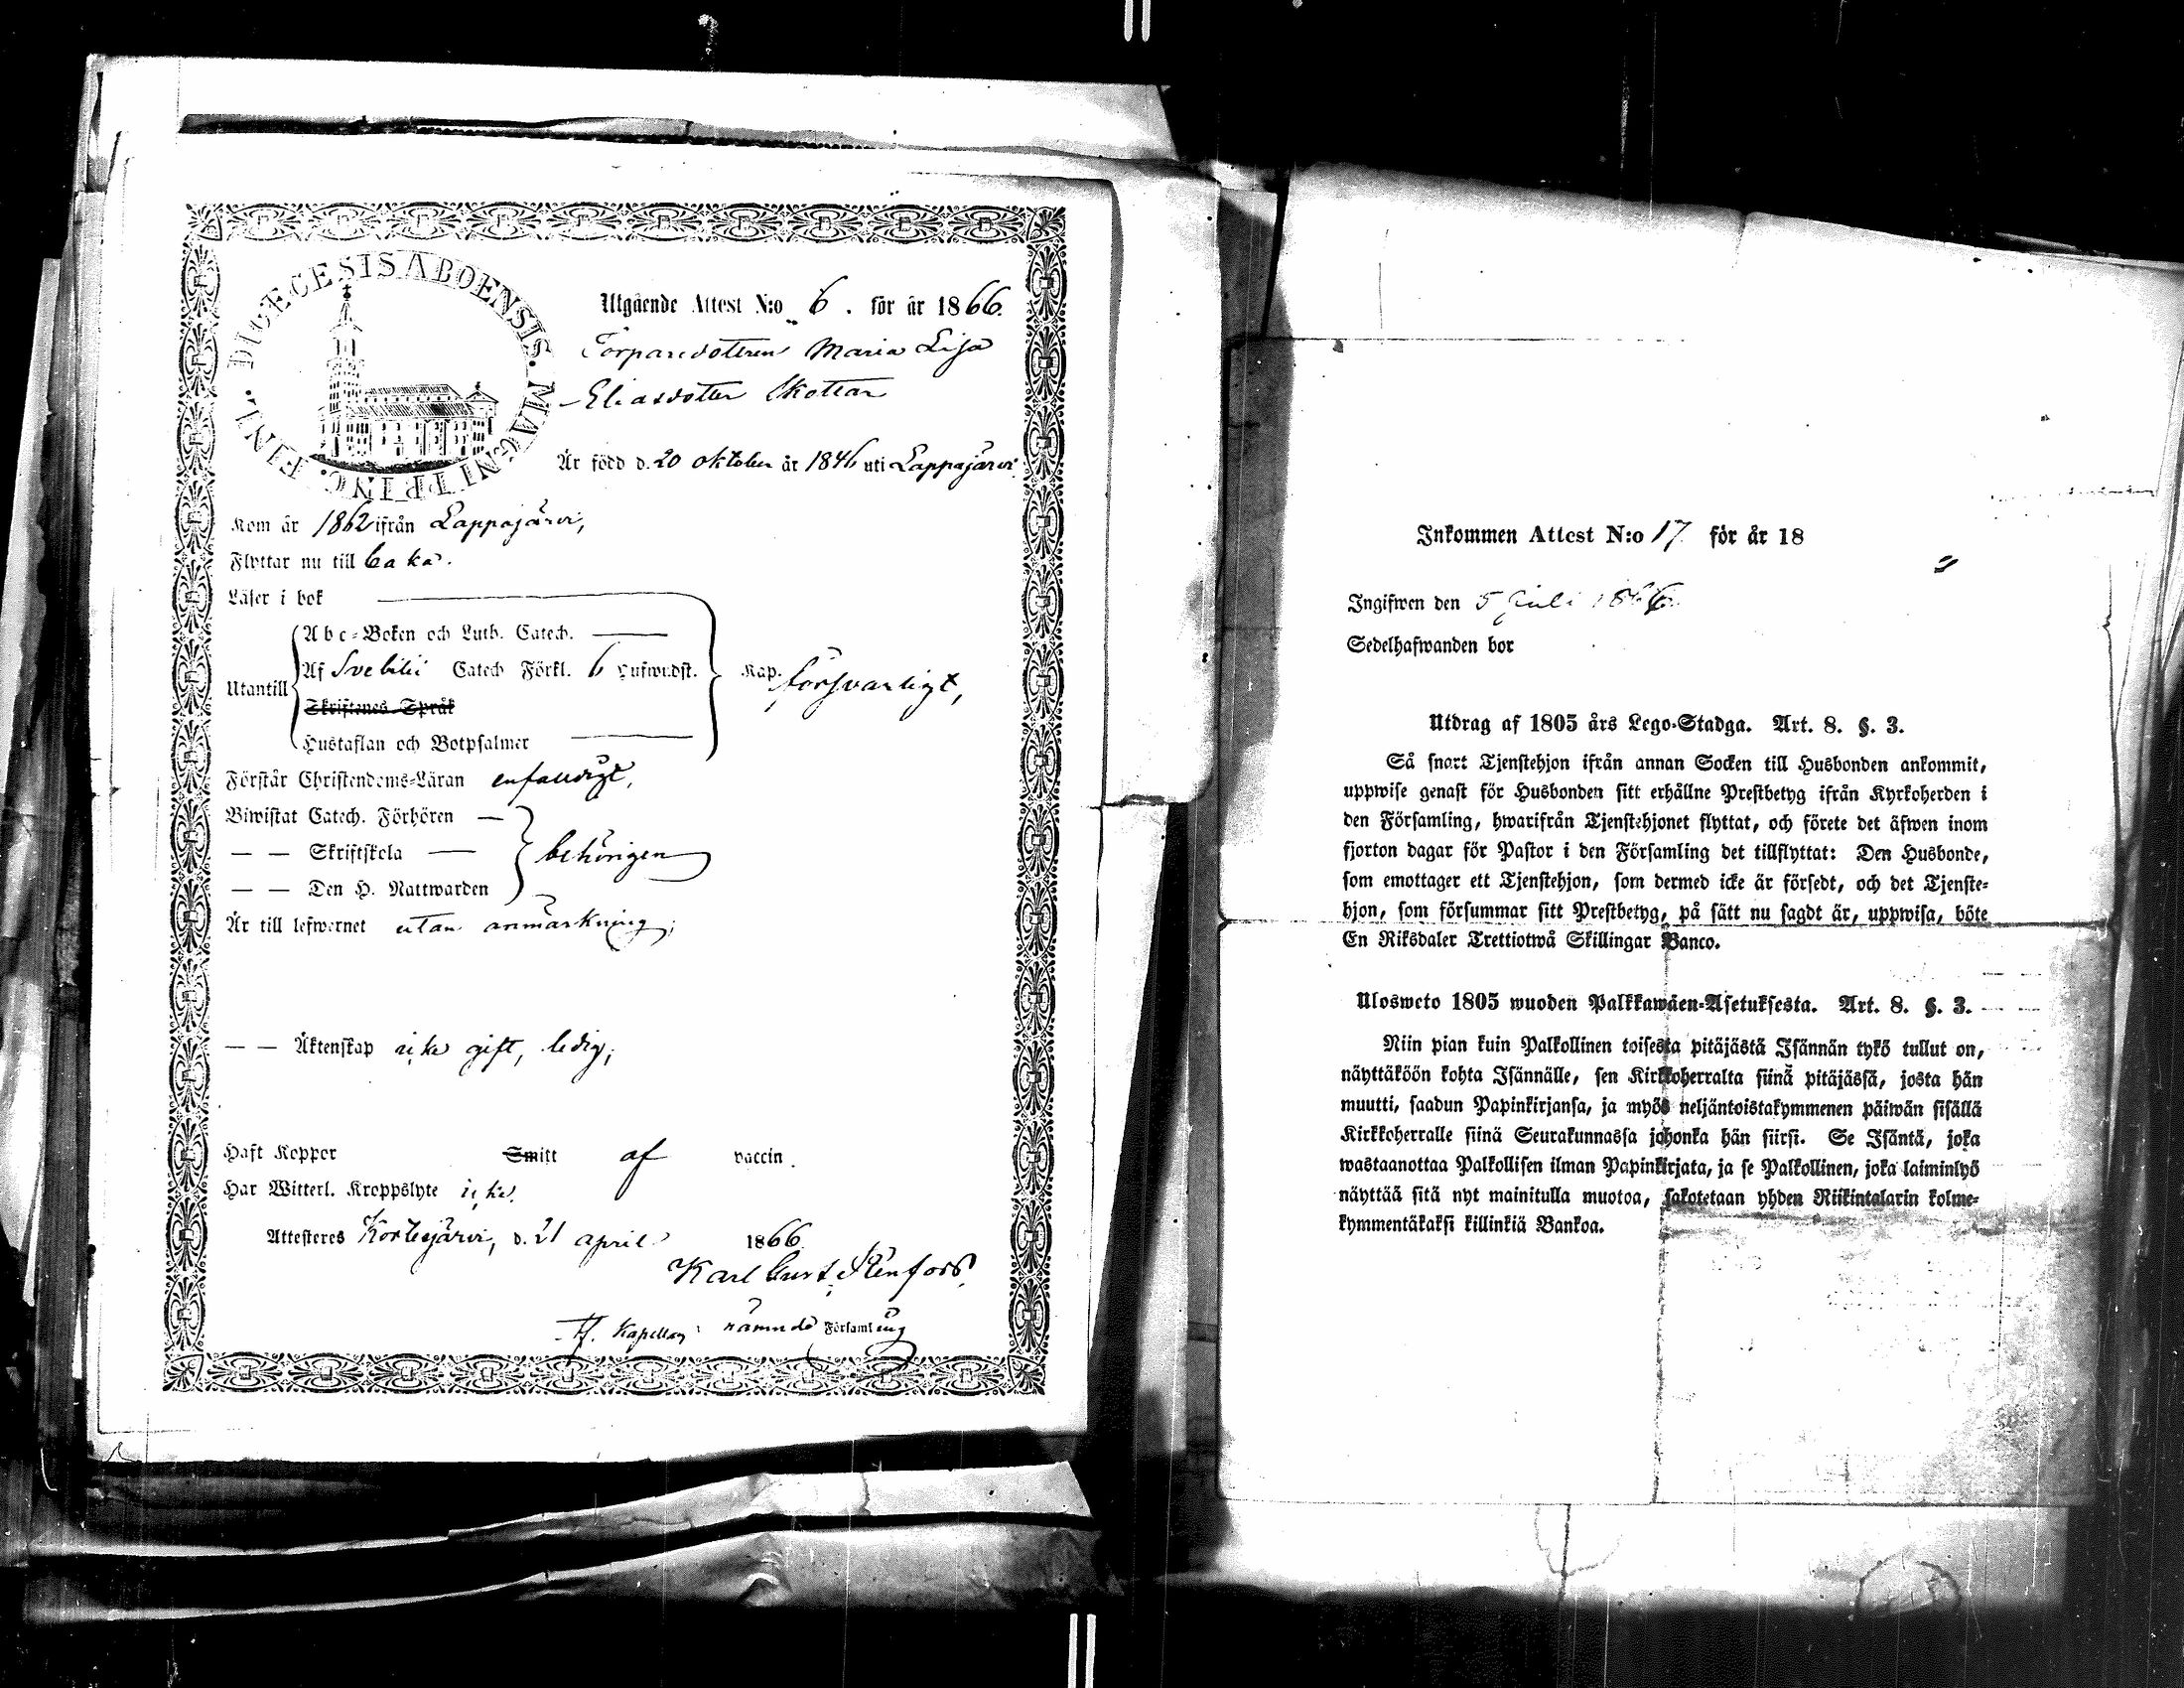 DIOECESIS ABOENSIS. MAGNI PRINC. FINL.
Utgående Attest N:o 6. för år 1866.
Torparedotteren Maria Lisa
Eliasdotter Skottar
Är född d. 20 oktober år 1846 uti Lappajärvi.
Kom år 1862 ifrån Lappajärvi,
Flyttar nu till baka.
Läser i bok
Abc-Boken och Luth. Catech.
Utantill
Af Svebilii Catech Förkl. 6 Hufwudst. Kap. försvarligt,
Skriftenes Språk
Hustaflan och Botpsalmer
Förstår Christendoms-Läran enfaldigt,
Biwistat Catech. Förhören —
— — Skriftskola — behörigen
— — Den H. Nattwarden
Är till lefwernet utan anmärkning;
— — Äktenskap icke gift, ledig;
Haft Koppor Smitt af vaccin.
Har Witterl. Kroppslyte icke.
Attesteres Kortesjärvi, d. 21 april 1866.
Karl Gust. Stenfors.
Tf. Kapellan i nämnde Församling
Inkommen Attest N:o 17. för år 18
Ingifwen den 5 Juli 1866.
Sedelhafwanden bor
Utdrag af 1805 års Lego-Stadga. Art. 8. §. 3.
Så snart Tjenstehjon ifrån annan Socken till Husbonden ankommit,
uppwise genast för Husbonden sitt erhållne Prestbetyg ifrån Kyrkoherden i
den Församling, hwarifrån Tjenstehjonet flyttat, och förete det äfwen inom
fjorton dagar för Pastor i den Församling det tillflyttat: Den Husbonde,
som emottager ett Tjenstehjon, som dermed icke är försedt, och det Tjenste-
hjon, som försummar sitt Prestbetyg, på sätt nu sagdt är, uppwisa, böte
En Riksdaler Trettiotwå Skillingar Banco.
Ulosweto 1805 wuoden Palkkawäen-Asetuksesta. Art. 8. §. 3.
Niin pian kuin Palkollinen toisesta pitäjästä Isännän tykö tullut on,
näyttäköön kohta Isännälle, sen Kirkkoherralta siinä pitäjässä, josta hän
muutti, saadun Papinkirjansa, ja myös neljäntoistakymmenen päiwän sisällä
Kirkkoherralle siinä Seurakunnassa johonka hän siirsi. Se Isäntä, joka
wastaanottaa Palkollisen ilman Papinkirjata, ja se Palkollinen, joka laiminlyö
näyttää sitä nyt mainitulla muotoa, sakotetaan yhden Riikintalarin kolme-
kymmentäkaksi killinkiä Bankoa.